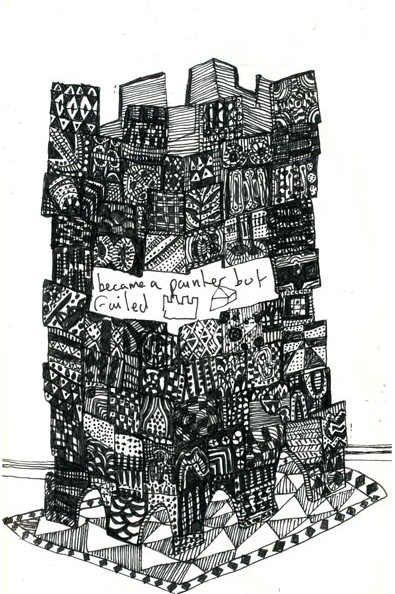 became a painter but
failed